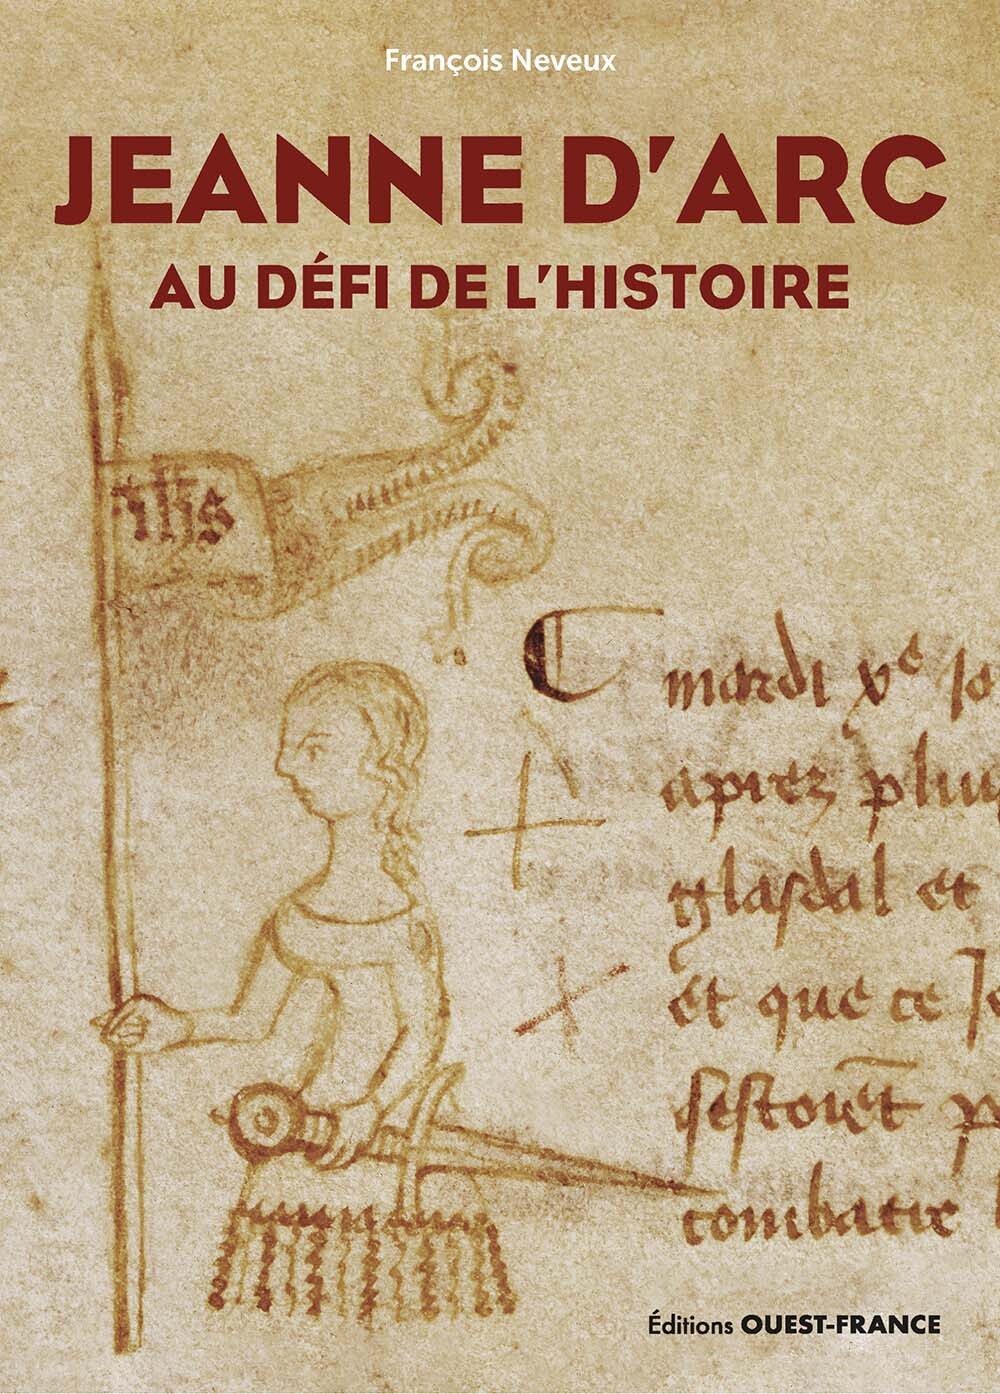 François Neveux
JEANNE D'ARC
AU DÉFI DE L'HISTOIRE
ihs
mardi xe jo
aprez plu
glasdal et
et que ce Je
sestoiẽt p
combatre
Éditions OUEST-FRANCE